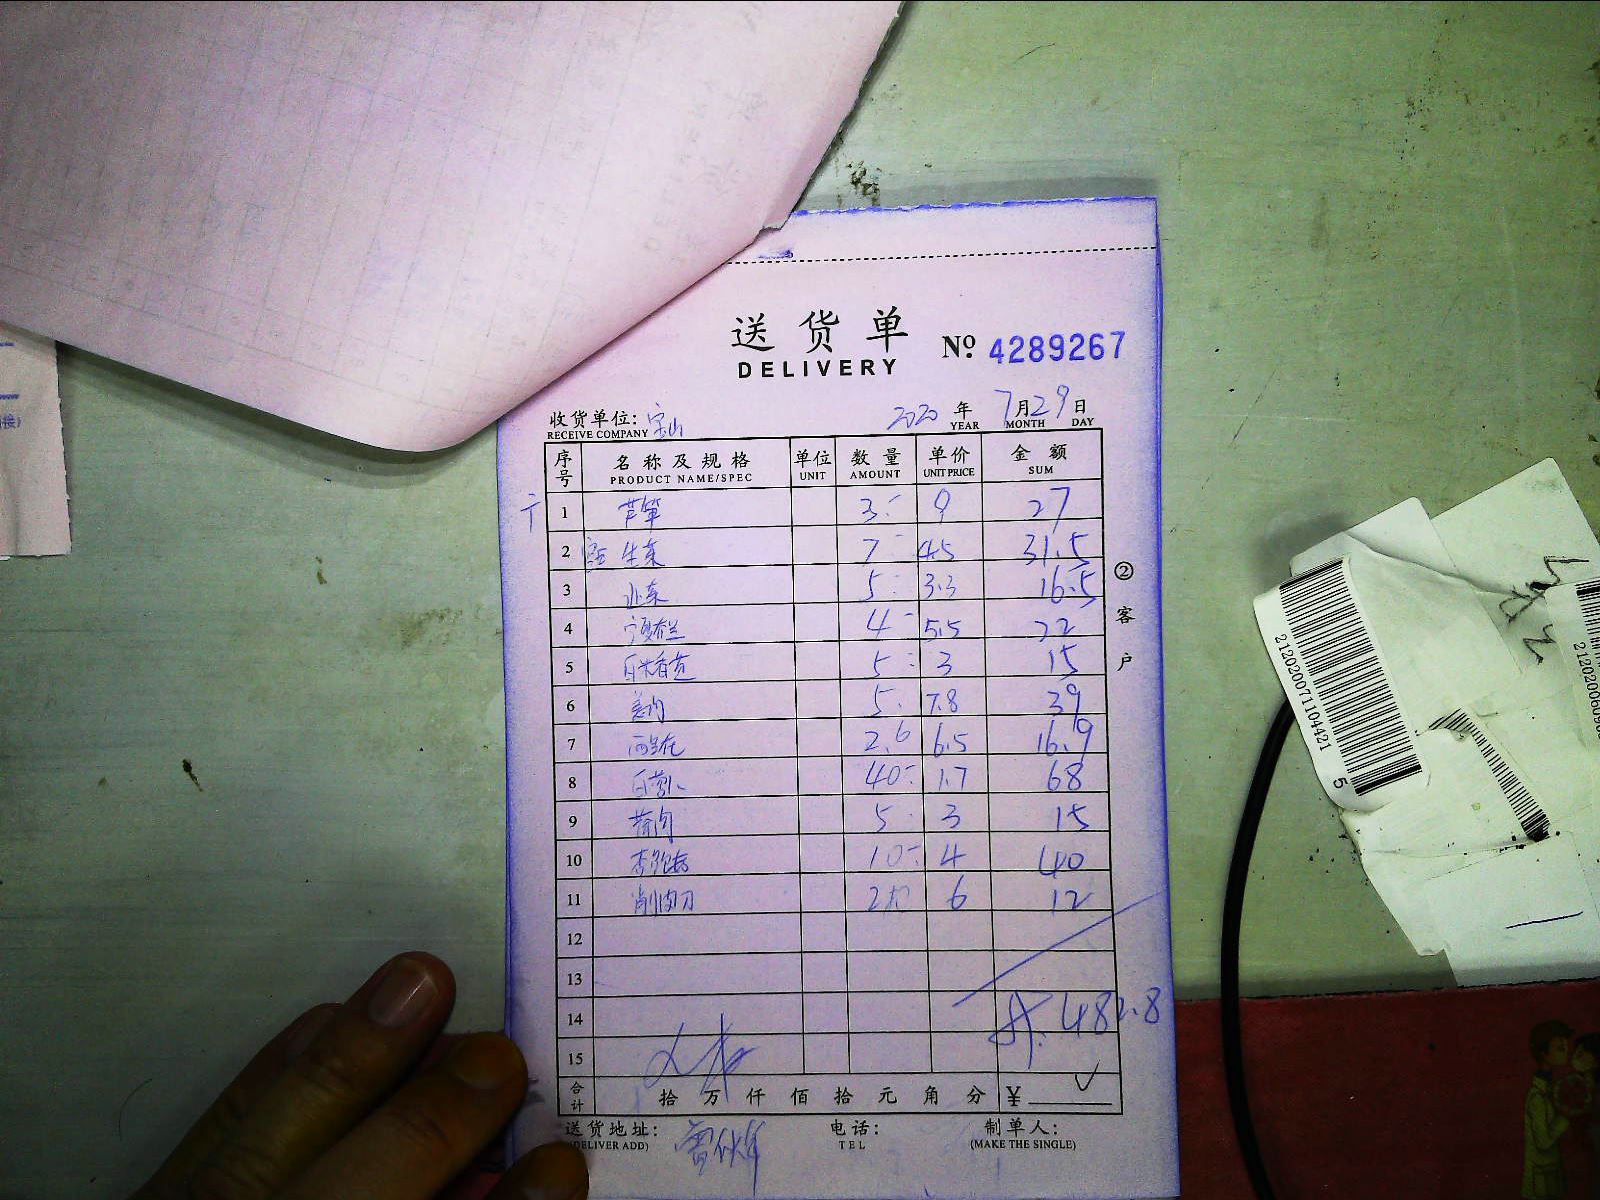 送货单
DELIVERY
№ 4289267
收货单位: 宝山 2020 年 7 月 29 日
RECEIVE COMPANY YEAR MONTH DAY
序号 名称及规格 单位 数量 单价 金额
PRODUCT NAME/SPEC UNIT AMOUNT UNIT PRICE SUM
1 芦笋 3 9 27
2 生菜 7 4.5 31.5
3 5 3.3 16.5
4 4 5.5 22
5 5 3 15
6 姜肉 5 7.8 39
7 西兰花 2.6 6.5 16.9
8 40 1.7 68
9 5 3 15
10 10 4 40
11 削皮刀 2把 6 12
12
13
14 共: 48 .8
15
合计 拾 万 仟 佰 拾 元 角 分 ¥
送货地址: 电话: 制单人:
(DELIVER ADD) TEL (MAKE THE SINGLE)
② 客户
2120200711044215